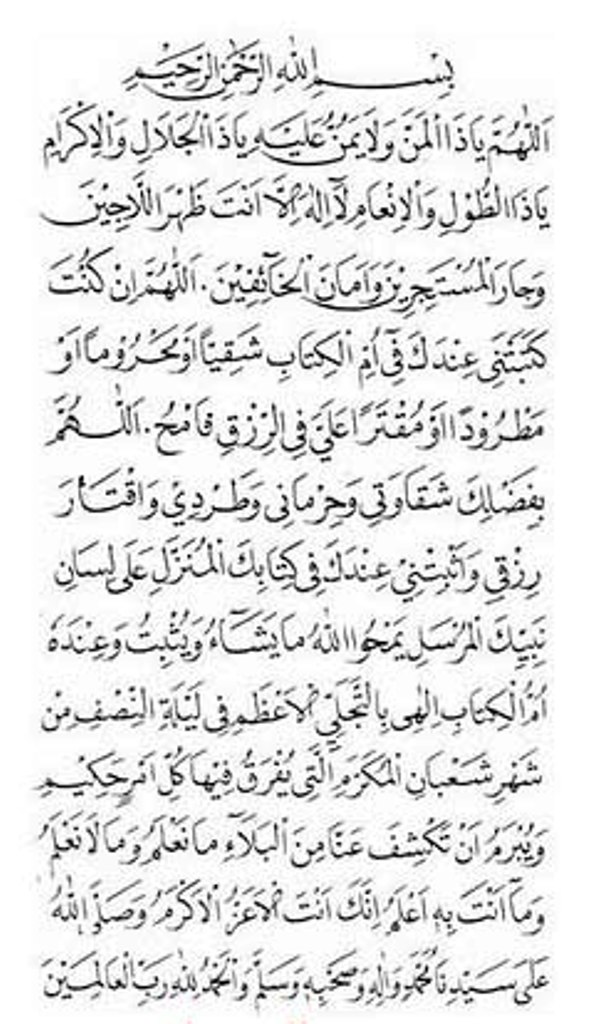 بِسْــــمِ اللهِ الرَّحْمٰنِ الرَّحِيْمِ
اَللّٰهُمَّ يَاذَا الْمَنِّ وَلَا يَمُنُّ عَلَيْهِ يَاذَا الْجَلَالِ وَالْاِكْرَامِ
يَاذَا الطَّوْلِ وَالْاِنْعَامِ لَآ اِلٰهَ اِلَّا اَنْتَ ظَهْرَ اللَّاجِيْنَ
وَجَارَ الْمُسْتَجِرِيْنَ وَاَمَانَ الْخَآئِفِيْنَ. اَللّٰهُمَّ اِنْ كُنْتَ
كَتَبْتَنِى عِنْدَكَ فِىٓ اُمِّ الْكِتَابِ شَقِيًّا اَوْمَحْرُوْمًا اَوْ
مَطْرُوْدًا اَوْ مُقْتَرًا عَلَيَّ فِى الرِّزْقِ فَامْحُ. اَللّٰــهُمَّ
بِفَضْلِكَ شَقَاوَتِى وَحِرْمَانِى وَطَرْدِيْ وَاقْتَارَ
رِزْقِي وَاَثْبِتْنِيْ عِنْدَكَ فِى كِتَابِكَ الْمُنَزَّلِ عَلَى لِسَانِ
نَبِيِّكَ الْمُرْسَلِ يَمْحُوا اللهُ مَا يَشَآءُ وَيُثْبِتُ وَعِنْدَهُ
اُمُّ الْكِتَابِ اِلٰهِى بِالتَّجَلِّي الْاَعْظَمِ فِى لَيْلَةِ النِّصْفِ مِنْ
شَهْرِ شَعْبَانِ الْمُكَرَّمِ الَّتِى يُفْرَقُ فِيْهَا كُلُّ اَمْرٍ حَكِيْمٍ
وَيُبْرَمُ اَنْ تَكْشِفَ عَنَّا مِنَ الْبَلَآءِ مَا نَعْلَمُ وَمَا لَا نَعْلَمُ
وَمَآ اَنْتَ بِهِ اَعْلَمُ اِنَّكَ اَنْتَ الْاَعَزُّ الْاَكْرَمُ وَصَلَّى اللهُ
عَلَى سَيِّدِنَا مُحَمَّدٍ وَاٰلِهِ وَصَحْبِهِ وَسَلَّمَ وَالْحَمْدُ لِلّٰهِ رَبِّ الْعَالَمِيْنَ